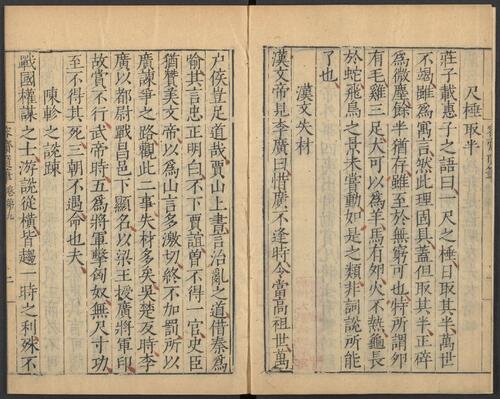 尺棰取半
莊子載惠子之語曰一尺之棰日取其半萬世
不竭雖為寓言然此理固具蓋但取其半正碎
為微塵餘半猶存雖至於無窮可也特所謂卵
有毛雞三足犬可以為羊馬有卵火不熱龜長
於蛇飛鳥之景未嘗動如是之類非詞說所能
了也
漢文失材
漢文帝見李廣曰惜廣不逢時令當高祖世萬
户侯豈足道哉賈山上書言治亂之道借秦為
喻其言忠正明白不下賈誼曽不得一官史臣
猶贊美文帝以為山言多激切終不加罰所以
廣諫爭之路觀此二事失材多矣吳楚反時李
廣以都尉戰昌邑下顯名以梁王授廣將軍印
故賞不行武帝時五為將軍擊匈奴無尺寸功
至不得其死三朝不遇命也夫
陳軫之説疎
戰國權謀之士游說從橫皆趨一時之利殊不